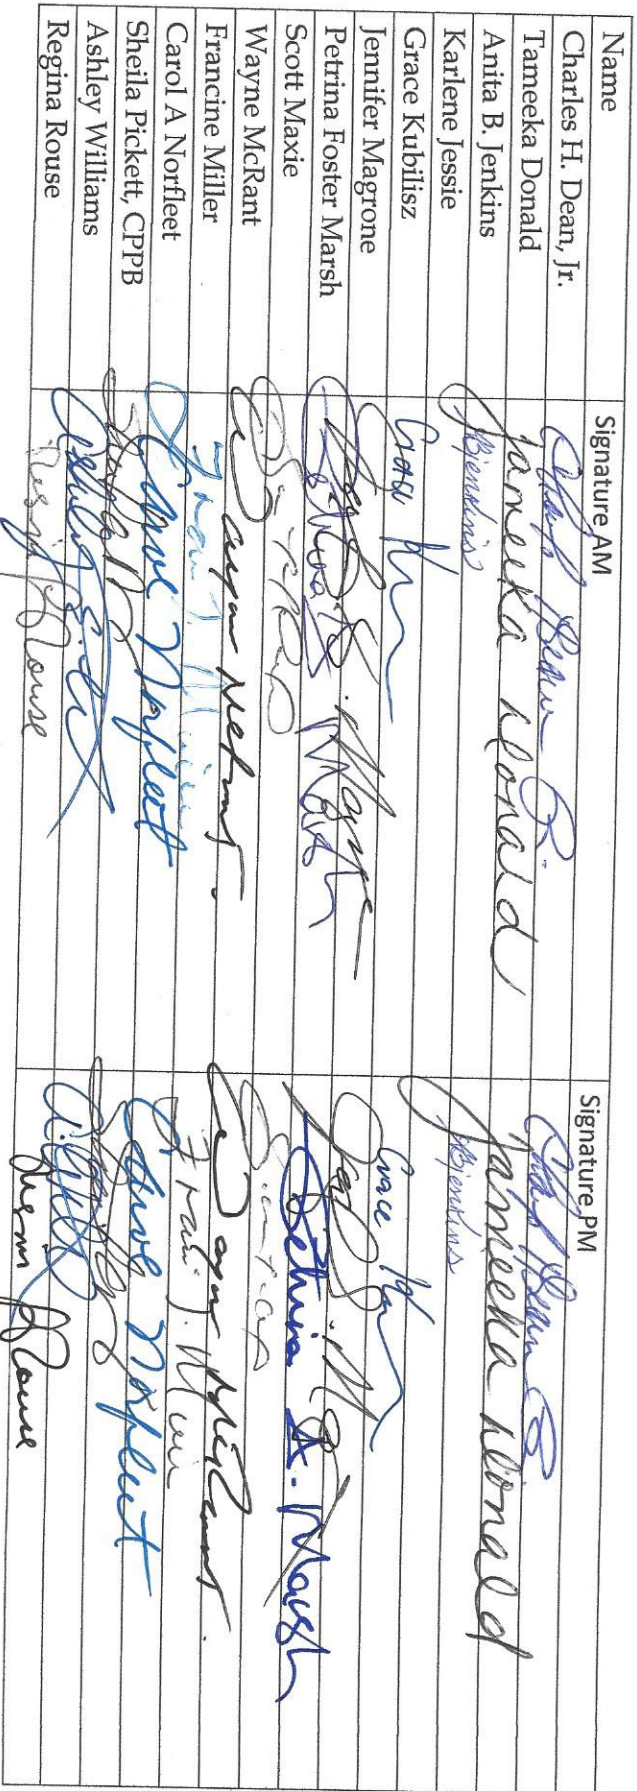 Name Signature AM Signature PM
Charles H. Dean, Jr.
Tameeka Donald Tameeka Donald Tameeka Donald
Anita B. Jenkins ABJenkins ABJenkins
Karlene Jessie
Grace Kubilisz Grace Grace
Jennifer Magrone
Petrina Foster Marsh Petrina Marsh Petrina A. Marsh
Scott Maxie
Wayne McRant Wayne McRant Wayne McRant
Francine Miller
Carol A Norfleet Carol Norfleet Carol Norfleet
Sheila Pickett, CPPB
Ashley Williams
Regina Rouse Regina Rouse Regina Rouse